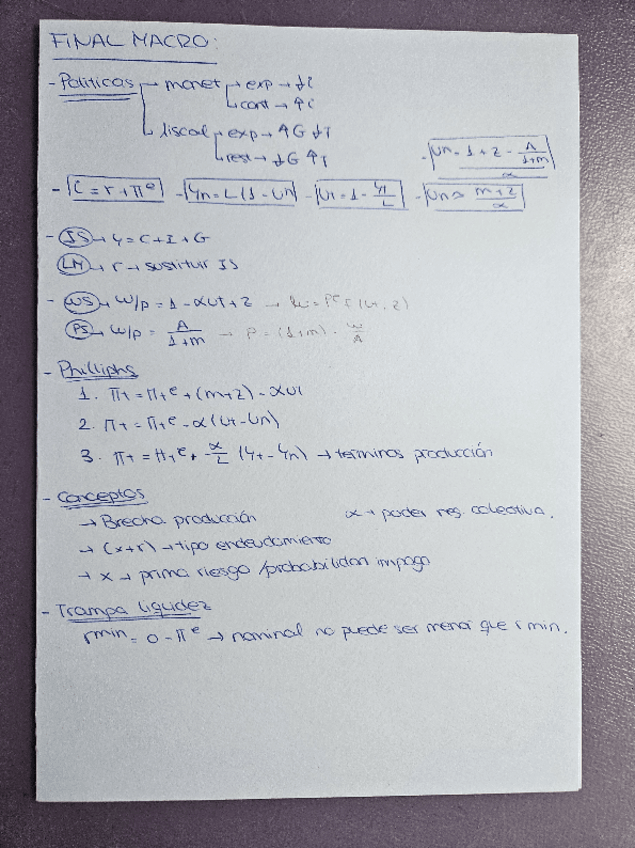 FINAL MACRO:
- Políticas → monet → exp → ↓i
→ cont → ↑i
→ fiscal → exp → ↑G ↓T
→ rest → ↓G ↑T
- Un = 1 + z - A/(1+m) / α
- i = r + π^e - Yn = L(1 - Un) - Ut = 1 - Yt/L - Un = (m+z)/α
- IS → Y = C + I + G
LM → r → sustituir IS
- WS → W/P = 1 - αut + z → W = P^e F(ut, z)
PS → W/P = A/(1+m) → P = (1+m) · W/A
- Philliphs
1. πt = πt^e + (m+z) - αut
2. πt = πt^e - α(ut - un)
3. πt = πt^e + α/L (Yt - Yn) → terminos producción
- Conceptos
→ Brecha producción α → poder neg. colectiva.
→ (x+r) → tipo endeudamiento
→ x → prima riesgo / probabilidad impago
- Trampa liquidez
r min = 0 - π^e → nominal no puede ser menor que r min.